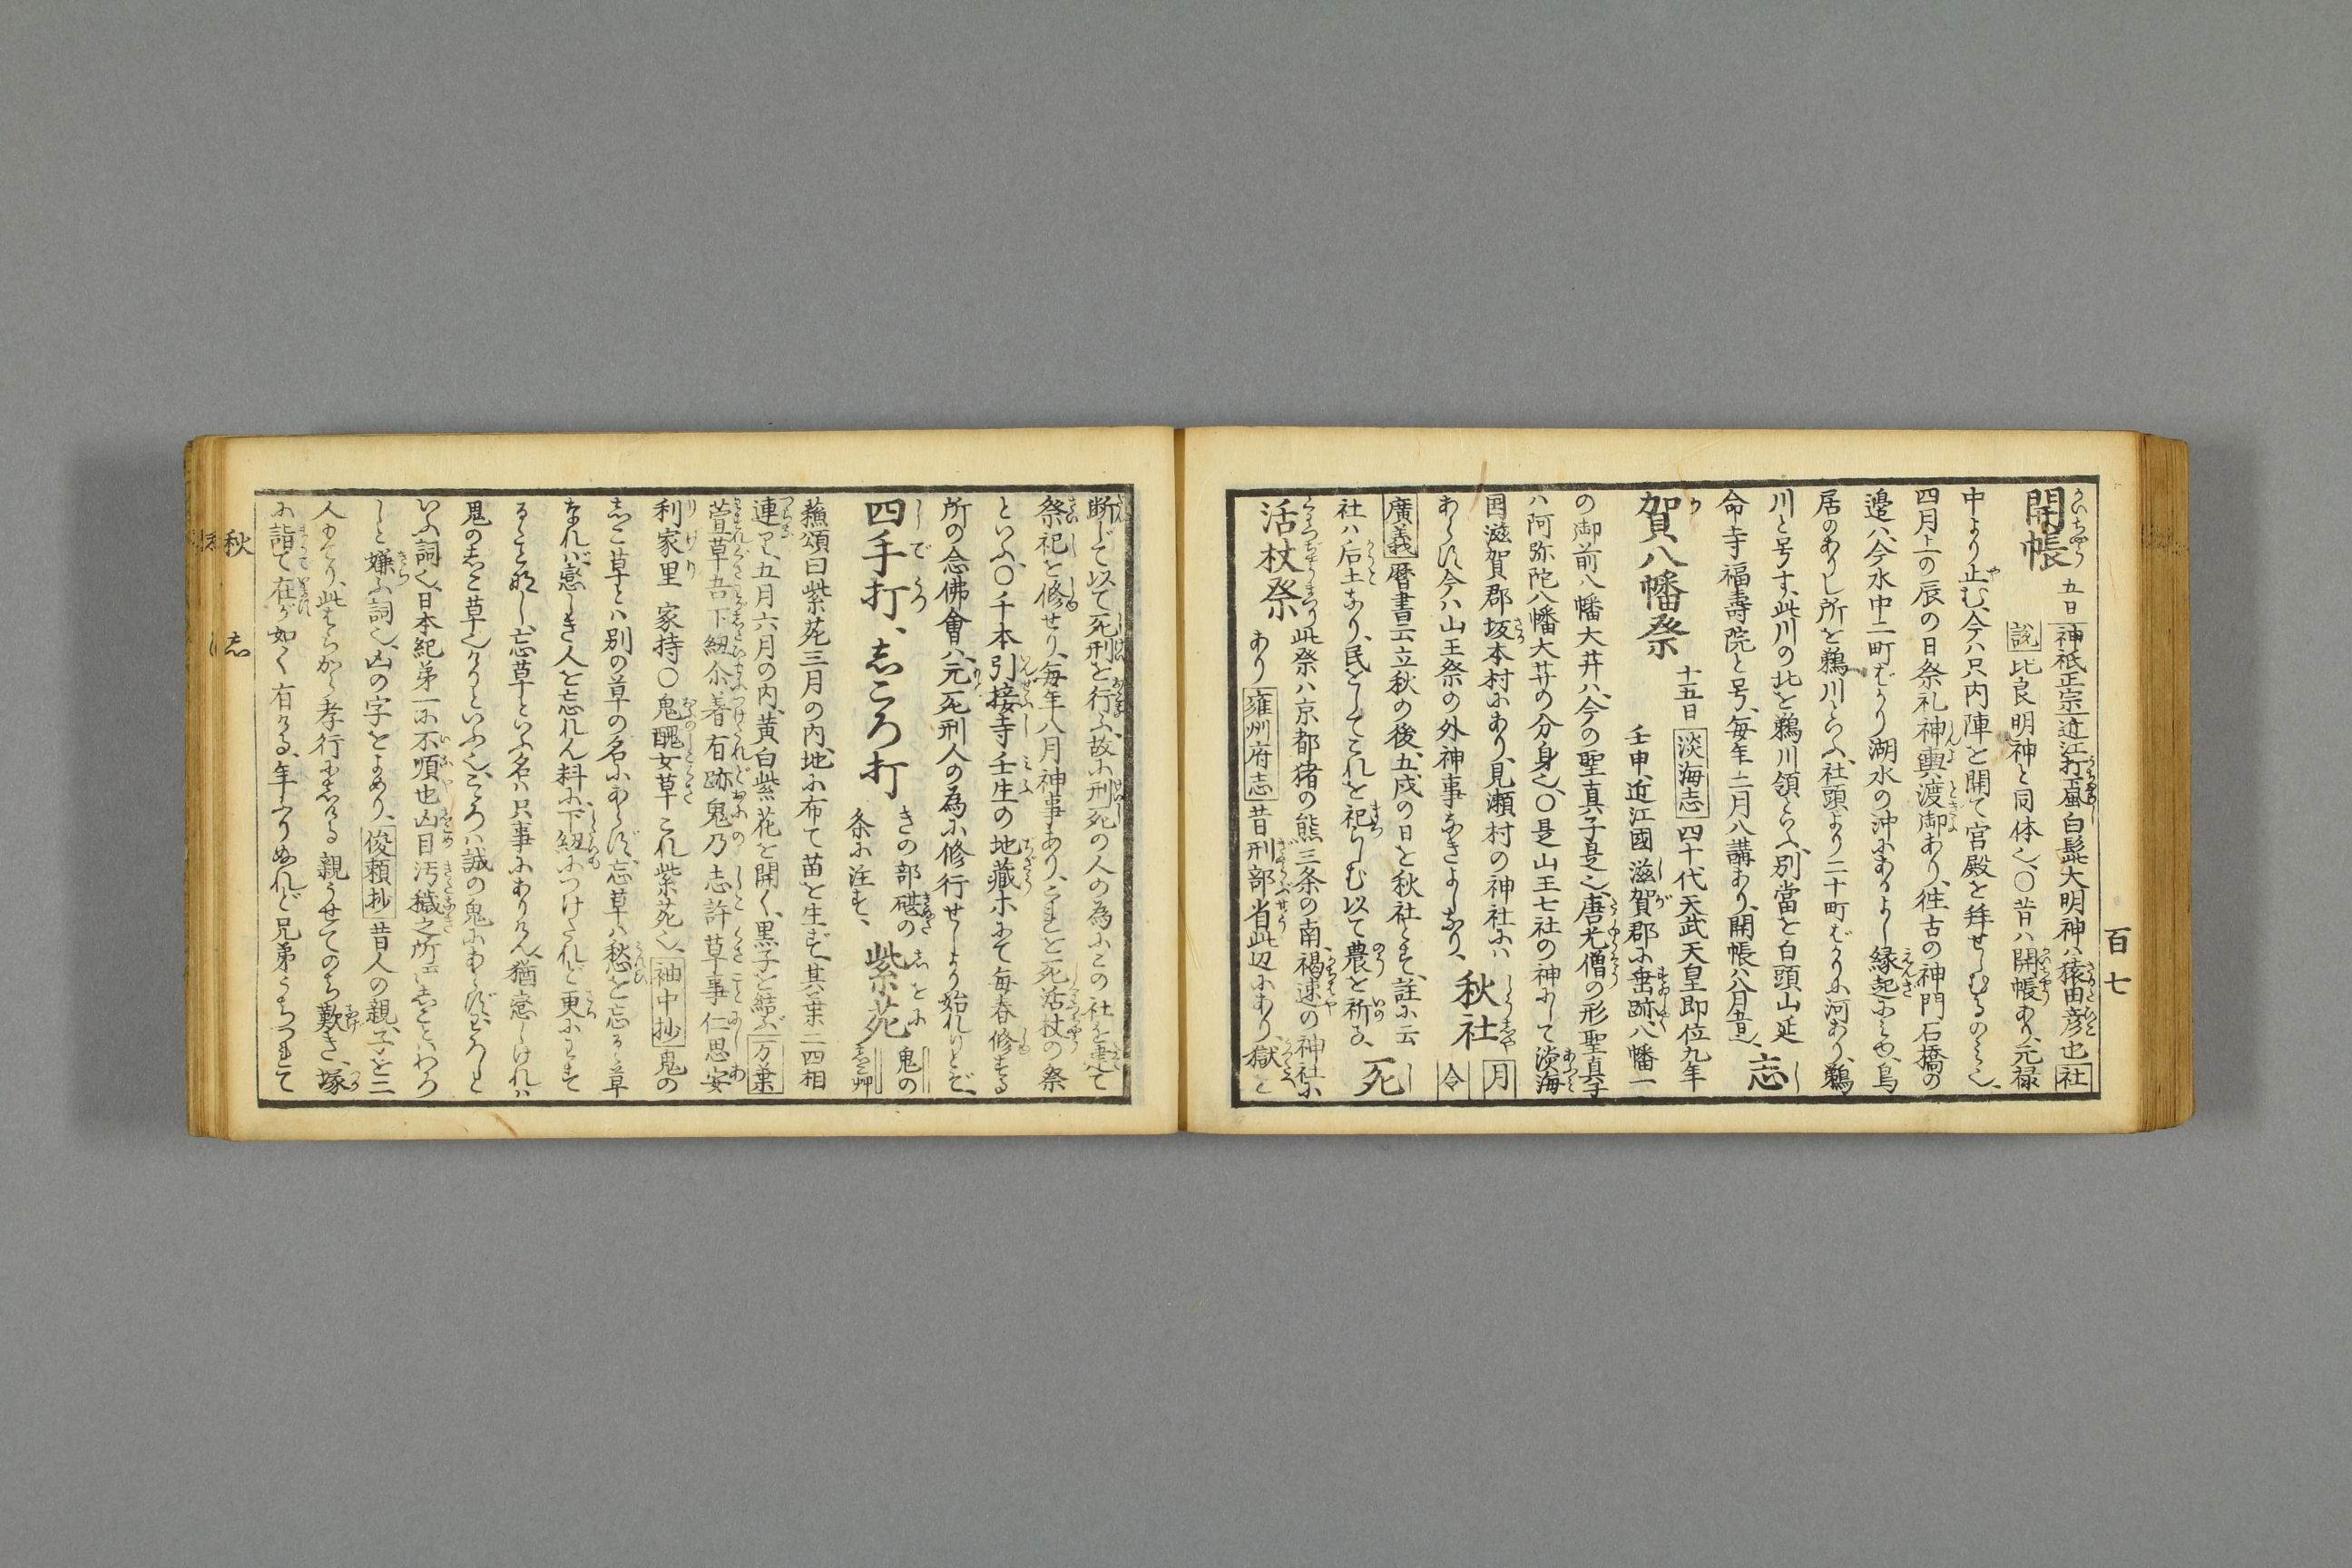 百七
開帳 五日 神祇正宗 近江打颪白髭大明神ハ猿田彦也 社
説 比良明神と同体也〇昔ハ開帳あり、元禄
中より止む、今ハ只内陣を開て宮殿を拜せしむるのミ也、
四月上の辰の日祭礼神輿渡御あり、往古の神門石橋の
邉ハ、今水中二町ばかり湖水の沖にあるよし縁起にミゆ、鳥
居のありし所を鵜川といふ、社頭より二十町ばかりに河あり、鵜
川と号す、此川の北を鵜川領といふ、別當を白頭山延
命寺福壽院と号、毎年二月八講あり、開帳ハ八月五日也、 志
賀八幡祭 十五日 淡海志 四十代天武天皇即位九年
壬申、近江國滋賀郡に垂跡、八幡一
の御前八幡大井ハ、今の聖真子是也、唐光僧の形聖真子
ハ阿弥陀八幡大井の分身也、〇是山王七社の神にして淡海
国滋賀郡坂本村にあり、見瀬村の神社にハ
あらず、今ハ山王祭の外神事なきよしなり、 秋社 月令
廣義 暦書云立秋の後、五戌の日を秋社とす、註に云
社ハ后土なり、民をしてこれを祀らしむ、以て農を祈る、 死
活杖祭 此祭ハ京都猪の熊三条の南、褐速の神社に
あり 雍州府志 昔刑部省此辺にあり、獄を
断じて以て死刑を行ふ、故に刑死の人の為にこの社を建て
祭祀を修せり、毎年八月神事あり、これを死活杖の祭
といふ、〇千本引接寺壬生の地藏ホにて毎春修する
所の念佛會ハ、元死刑人の為に修行せしより始れりとぞ、
四手打、志ころ打 きの部碪の
条に注す、 紫苑 鬼の
志こ艸
蘓頌曰紫苑三月の内、地に布て苗を生ず、其葉二四相
連る、五月六月の内、黄白紫花を開く、黒子を結ぶ 万葉
萱草吾下紐尓著有跡鬼乃志許草事仁思安
利家里 家持〇鬼醜女草 これ紫苑也、 袖中抄 鬼の
志こ草とハ別の草の名にあらず、忘草ハ愁を忘るゝ草
なれバ、戀しき人を忘れん料に、下紐につけたれど更にわす
るゝこと那し、忘草といふ名ハ只事にありけん、猶戀しけれハ
鬼の志こ草也けりといふ也、こゝろハ誠の鬼にあらず、志ことと
いふ詞也、日本紀第一に不順也凶目汚穢之所云志こといわろ
しと嫌ふ詞也、凶の字をよめり、 俊頼抄 昔人の親、子を三
人もてり、此ミちかく孝行に志ける親うせてのち歎き、塚
に詣て在が如く有ける、年ふりぬれど兄弟うちつれて
秋 志